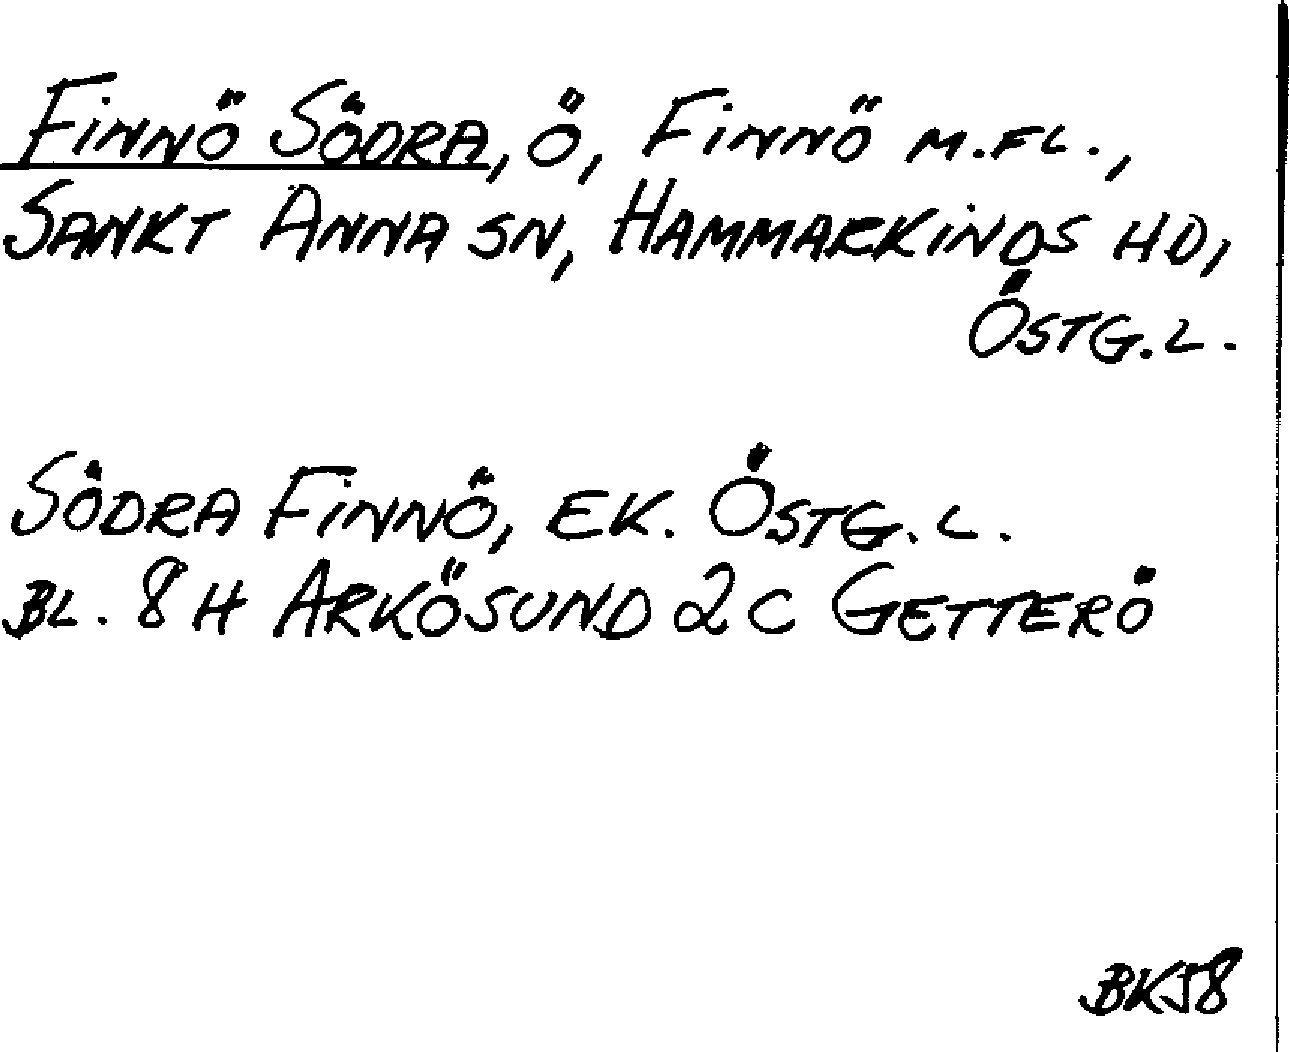 FINNÖ SÖDRA, Ö, FINNÖ M.FL.,
SANKT ANNA SN, HAMMARKINDS HD,
ÖSTG.L.
SÖDRA FINNÖ, EK. ÖSTG.L.
BL. 8H ARKÖSUND 2C GETTERÖ
BK58